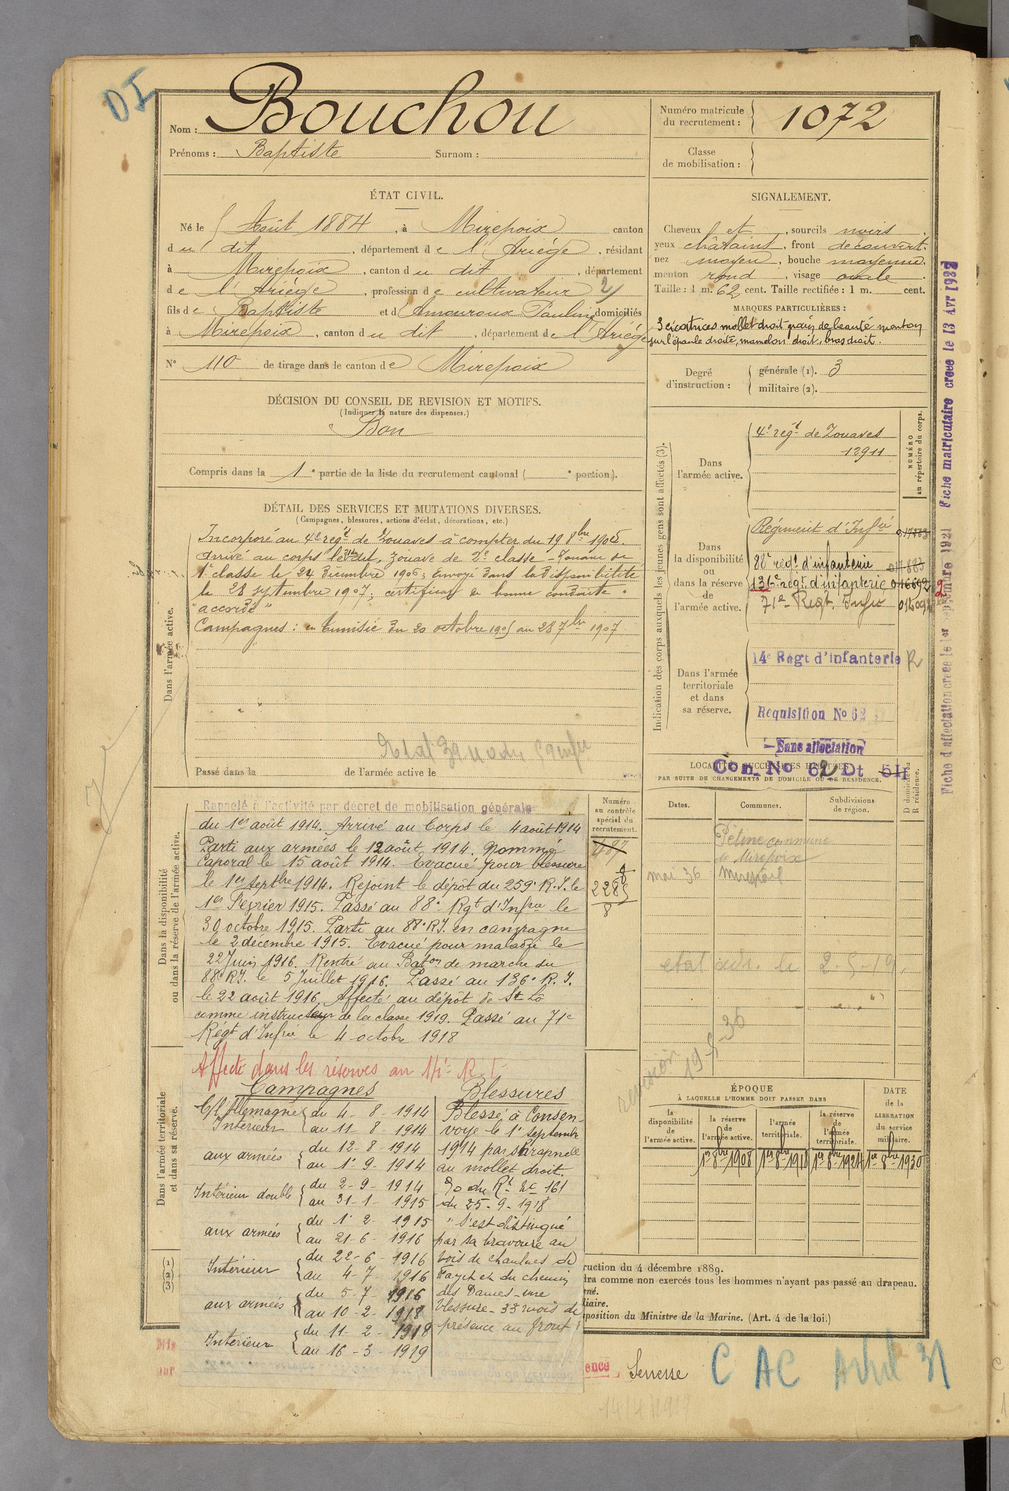 DI
Nom : Bouchou
Prénoms : Baptiste Surnom :
Numéro matricule du recrutement : 1072
Classe de mobilisation :
ÉTAT CIVIL.
Né le Août 1884, à Mirepoix canton
du dit, département de l'Ariége, résidant
à Mirepoix, canton du dit, département
de l'Ariége, profession de cultivateur
fils de Baptiste et d Amouroux Pauline domiciliés
à Mirepoix, canton du dit, département de l'Ariége
N° 110 de tirage dans le canton de Mirepoix
SIGNALEMENT.
Cheveux et, sourcils noirs
yeux châtains, front découvert
nez moyen, bouche moyenne
menton rond, visage ovale
Taille : 1 m. 62 cent. Taille rectifiée : 1 m. cent.
MARQUES PARTICULIÈRES :
3 cicatrices mollet droit grain de beauté menton
sur l'épaule droite, mamelon droit, bras droit.
Degré d'instruction : générale (1). 3
militaire (2).
DÉCISION DU CONSEIL DE REVISION ET MOTIFS.
(Indiquer la nature des dispenses.)
Bon
Compris dans la 1e partie de la liste du recrutement cantonal ( e portion).
DÉTAIL DES SERVICES ET MUTATIONS DIVERSES.
(Campagnes, blessures, actions d'éclat, décorations, etc.)
Dans l'armée active.
Incorporé au 4e régt de Zouaves à compter du 19 8bre 1905
Arrivé au corps le dit, zouave de 2e classe - Zouave de
1e classe le 24 Décembre 1906; envoyé dans la disponibilité
le 28 septembre 1907; certificat de bonne conduite
"accordé"
Campagnes : en Tunisie du 20 octobre 1905 au 28 7bre 1907
Passé dans la de l'armée active le
Indication des corps auxquels les jeunes gens sont affectés (3).
NUMÉRO au répertoire du corps.
Dans l'armée active.
4e régt de Zouaves
12911
Dans la disponibilité ou dans la réserve de l'armée active.
Régiment d'Infie
88e régt d'infanterie
136e régt d'infanterie
71e Regt Infie
Dans l'armée territoriale et dans sa réserve.
14e Régt d'infanterie R
Requisition No 62
Sans affectation
Con. No 62 Dt 54
LOCALITÉS SUCCESSIVES HABITÉES
PAR SUITE DE CHANGEMENTS DE DOMICILE OU DE RÉSIDENCE.
D domicile. R résidence.
Dates. Communes. Subdivisions de région.
commune
de Mirepoix
mai 36 Mirepoix
19-8-36
Fiche matriculaire créée le 13 Avr 1922
Dans la disponibilité ou dans la réserve de l'armée active.
Numéro au contrôle spécial du recrutement.
Rappelé à l'activité par décret de mobilisation générale
du 1er août 1914. Arrivé au Corps le 4 août 1914
Parti aux armées le 12 août 1914. Nommé
Caporal le 15 août 1914. Evacué pour blessure
le 1er septbre 1914. Rejoint le dépôt du 259e R.I. le
1er Février 1915. Passé au 88e Rgt d'Infie le
30 octobre 1915. Parti au 88e RI. en campagne
le 2 décembre 1915. Evacué pour maladie le
22 Juin 1916. Rentré au Baton de marche du
88e RI. le 5 Juillet 1916. Passé au 136e R.I.
le 22 août 1916. Affecté au dépôt de St Lô
comme instructeur de la classe 1919. Passé au 71e
Régt d'Infie le 4 octobre 1918
Affecté dans les réserves au 14e R.I.
Dans l'armée territoriale et dans sa réserve.
Campagnes
C/ l'Allemagne
Intérieur du 4-8-1914
au 11-8-1914
aux armées du 12-8-1914
au 1er-9-1914
Intérieur double du 2-9-1914
au 31-1-1915
aux armées du 1er-2-1915
au 21-6-1916
Intérieur du 22-6-1916
au 4-7-1916
aux armées du 5-7-1916
au 10-2-1918
Intérieur du 11-2-1918
au 16-3-1919
Blessures
Blessé à Consen-
voye le 1er septembre
1914 par shrapnell
au mollet droit.
O du Rt No 161
du 25-9-1918
"S'est distingué
par sa bravoure au
bois de Chaulnes de
Fayet et du chemin
des Dames - une
blessure - 33 mois de
présence au front"
ÉPOQUE
À LAQUELLE L'HOMME DOIT PASSER DANS
la disponibilité de l'armée active.
la réserve de l'armée active.
l'armée territoriale.
la réserve de l'armée territoriale.
DATE de la LIBÉRATION du service militaire.
1er 8bre 1908
1er 8bre 1918
1er 8bre 1924
1er 8bre 1930
ruction du 4 décembre 1889.
dra comme non exercés tous les hommes n'ayant pas passé au drapeau.
rné.
iliaire.
sposition du Ministre de la Marine. (Art. 4 de la loi.)
(1)
(2)
(3)
ence
C AC Avril 31